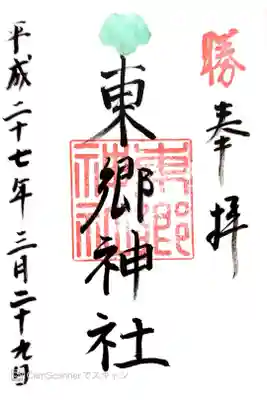 勝
奉拝
東郷神社
東郷神社
平成二十七年三月二十九日
CamScannerでスキャン